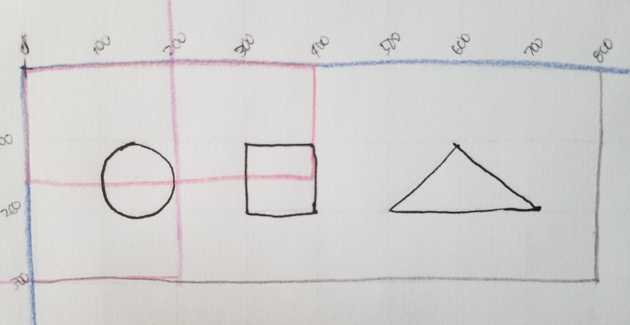 0 100 200 300 400 500 600 700 800
100
200
300